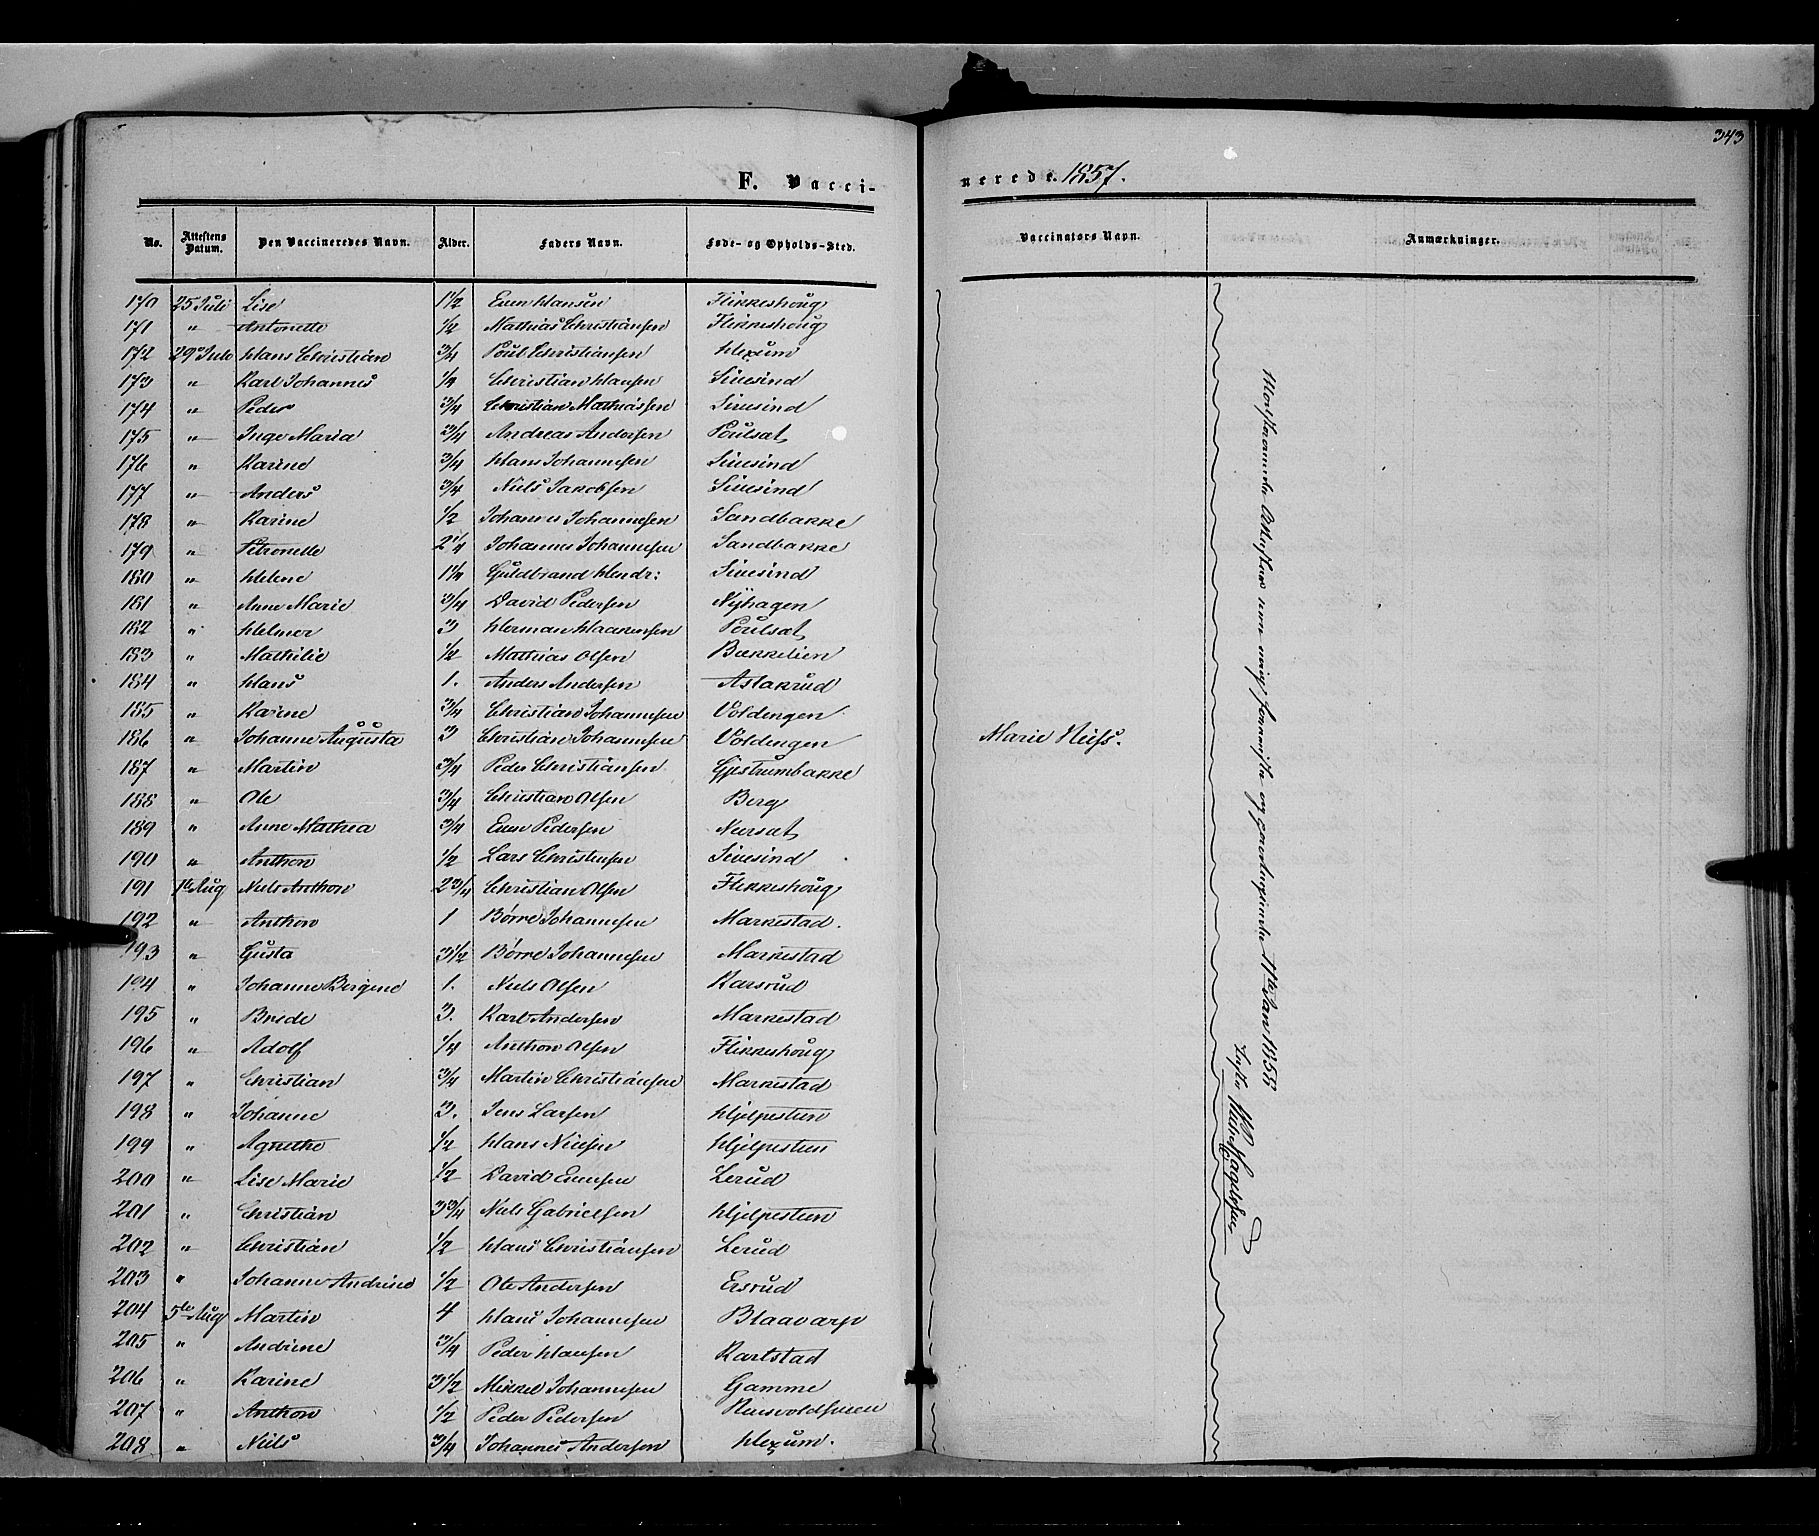 343
F. Vacci-
nerede. 1857.
No. Attestens Datum. Den Vaccineredes Navn. Alder. Faders Navn. Føde- og Opholds-Sted. Vaccinators Navn. Anmærkninger.
170 25 Juli Lise 1 1/2 Even Hansen Flikkeshoug
171 " Antonette 1/2 Mathias Christiansen Flikkeshoug
172 29 Juli Hans Christian 3/4 Poul Christiansen Hexum
173 " Karl Johannes 1/4 Christian Hansen Sivesind
174 " Peder 3/4 Christian Mathiassen Sivesind
175 " Inge Maria 3/4 Andreas Andersen Poulsat
176 " Karine 3/4 Hans Johannesen Sivesind
177 " Anders 3/4 Niels Jacobsen Sivesind
178 " Karine 1/2 Johannes Johannesen Sandbakke
179 " Petronelle 2 1/4 Johannes Johannesen Sandbakke
180 " Helene 1 1/4 Guldbrand Hendr: Sivesind
181 " Anne Marie 3/4 David Pedersen Nyhagen
182 " Helmer 3 Herman Haakensen Poulsat
183 " Mathilie 1/2 Mathias Olsen Bækkelien
184 " Hans 1. Anders Andersen Astakrud
185 " Karine 3/4 Christian Johannesen Voldengen
186 " Johanne Augusta 3 Christian Johannesen Voldengen Marie Neiss.
187 " Martin 3/4 Peder Christiansen Gjestrumbakke
188 " Ole 3/4 Christian Olsen Berg
189 " Anne Mathea 3/4 Even Pedersen Nersat
190 " Anthon 1/2 Lars Christensen Sivesind
191 1te Aug Niels Anthon 2 3/4 Christian Olsen Flikkeshoug
192 " Anthon 1 Børre Johannesen Markestad.
193 " Gusta 3 1/2 Børre Johannesen Markestad
194 " Johanne Bergine 1. Niels Olsen Karsrud
195 " Brede 3. Karl Andersen Markestad
196 " Adolf 1/4 Anthon Olsen Flikkeshoug
197 " Christian 3/4 Martin Christiansen Markestad
198 " Johanne 3. Jens Larsen Hjelpesteen
199 " Agnethe 1/2 Hans Nielsen Hjelpesteen
200 " Lise Marie 1/2 David Evensen Lerud
201 " Christian 3 3/4 Niels Gabrielsen Hjelpesteen
202 " Christian 1/2 Hans Christiansen Lerud
203 " Johanne Andrine 1/2 Ole Andersen Ersrud
204 5te Aug Martin 4 Hans Johannesen Blaavarp
205 " Andrine 3/4 Peder Hansen Karlstad
206 " Karine 3 1/2 Mikkel Johannesen Gamme
207 " Anthon 1/2 Peder Pedersen
208 " Niels 3/4 Johannes Andersen Hexum.
Attester ere mig foreviste og 11te Jan 1858